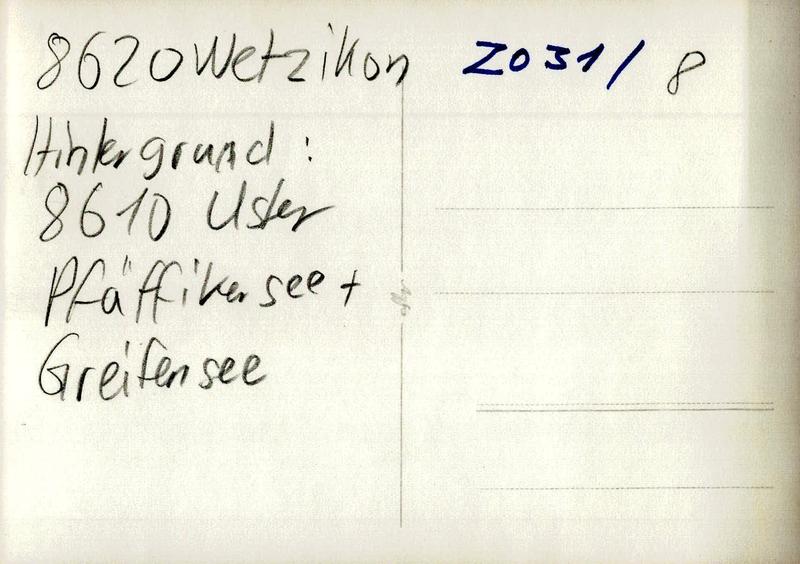 8620 Wetzikon
Hintergrund :
8610 Uster
Pfäffikersee +
Greifensee
Z031/ 8